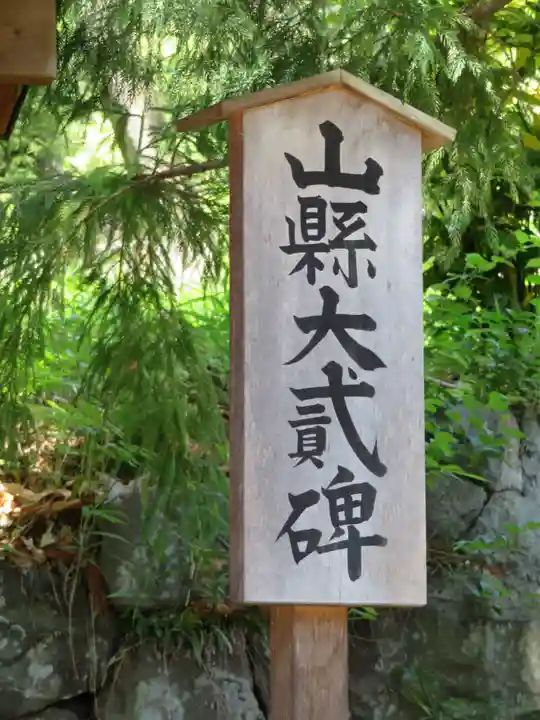 山縣大貳碑